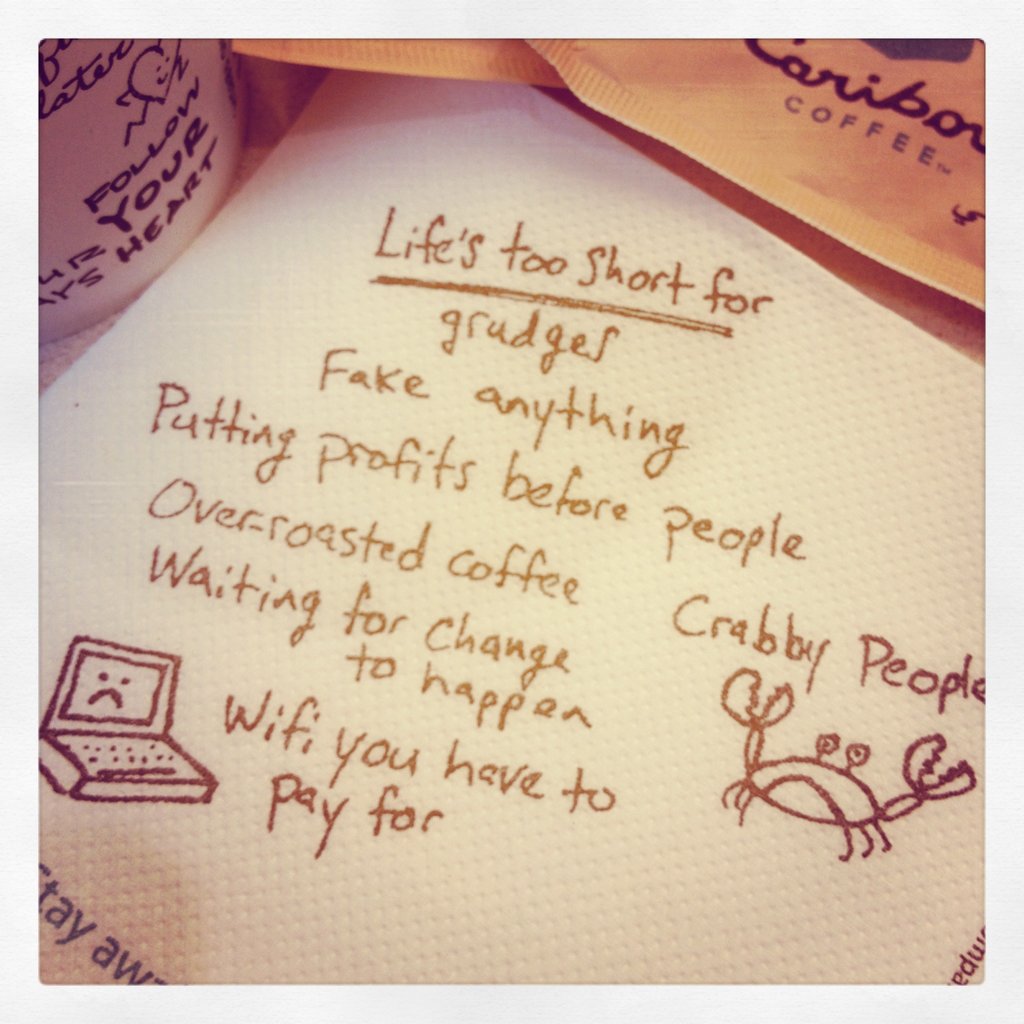 later
FOLLOW
YOUR
HEART
Caribou
COFFEE™
Life's too short for
grudges
Fake anything
Putting profits before people
Over-roasted coffee
Waiting for change
to happen
Crabby People
Wifi you have to
pay for
Stay awa